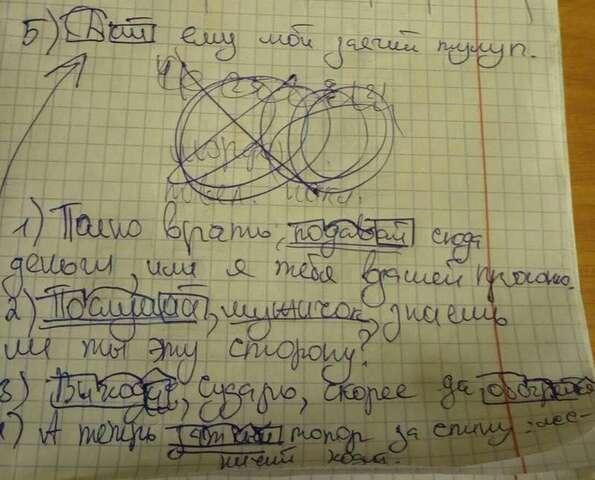 5) Дай ему мой заячий тулуп.
1) Полно врать, подавай сюда
деньги, или я тебя взашей прогоню.
2) Послушай, мужичок, знаешь
ли ты эту сторону?
3) Выходи, сударь, скорее да обогрейся
4) А теперь заткни топор за спину: